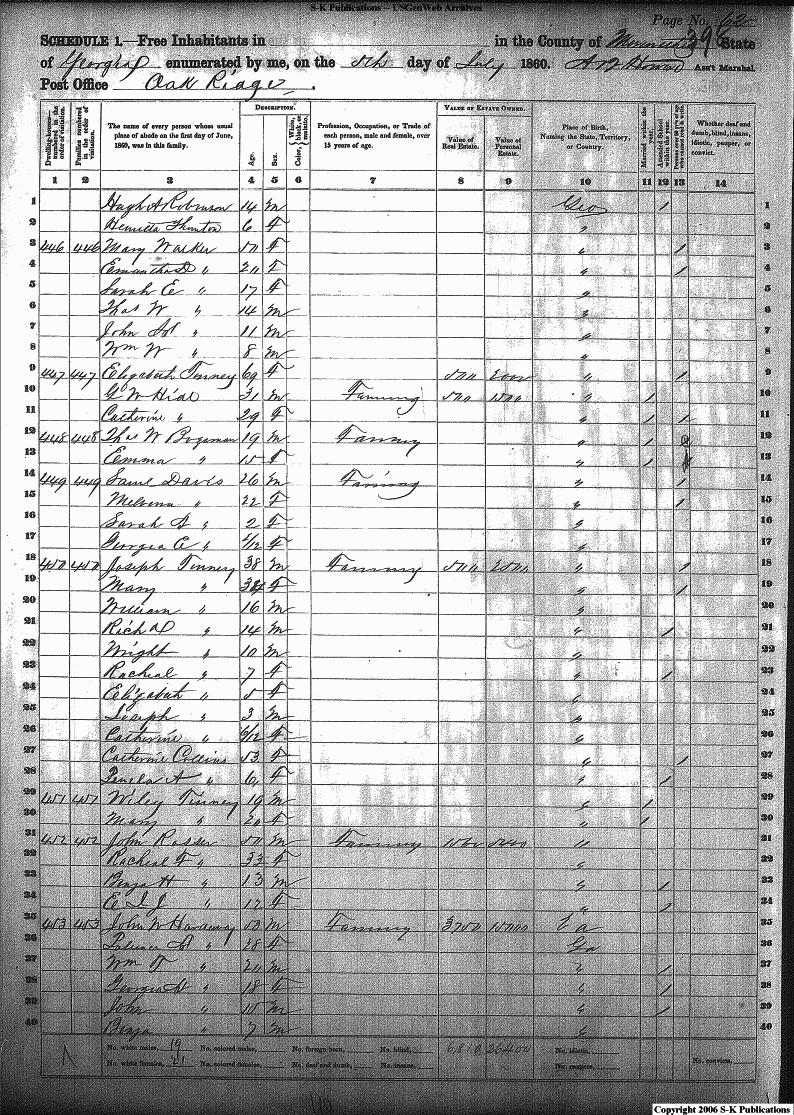 S-K Publications – USGenWeb Archives
Page No. 62
SCHEDULE 1.—Free Inhabitants in in the County of State
of Georgia enumerated by me, on the 5th day of July 1860. Ass't Marshal.
Post Office Oak Ridge.
Dwelling-houses numbered in the order of visitation.
Families numbered in the order of visitation.
The name of every person whose usual place of abode on the first day of June, 1860, was in this family.
DESCRIPTION.
Age.
Sex.
Color, White, black, or mulatto.
Profession, Occupation, or Trade of each person, male and female, over 15 years of age.
VALUE OF ESTATE OWNED.
Value of Real Estate.
Value of Personal Estate.
Place of Birth, Naming the State, Territory, or Country.
Married within the year.
Attended School within the year.
Persons over 20 y'rs of age who cannot read & write.
Whether deaf and dumb, blind, insane, idiotic, pauper, or convict.
1 2 3 4 5 6 7 8 9 10 11 12 13 14
1 Hugh A Robinson 14 m Geo / 1
2 Henrietta 6 f " 2
3 446 446 Mary Walker f " / 3
4 " f " / 4
5 Sarah E " 17 f " 5
6 Thos W " 14 m " 6
7 John " 11 m " 7
8 Wm W " 8 m " 8
9 447 447 Elizabeth Tinney 69 f 500 2000 " / 9
10 G W 31 m Farming 500 1500 " / 10
11 Catherine " 29 f " / / 11
12 448 448 Thos W 19 m Farming " / 12
13 Emma " 15 f " / 13
14 449 449 Saml Davis 26 m Farming " / 14
15 " 22 f " / 15
16 Sarah A " 2 f " 16
17 Georgia E " 2/12 f " 17
18 450 450 Joseph Tinney 38 m Farming 500 2500 " / 18
19 Mary " 34 f " / 19
20 William " 16 m " 20
21 Richd " 14 m " / 21
22 Wright " 10 m " 22
23 Racheal " 7 f " / 23
24 Elizabeth " 5 f " 24
25 Joseph " 3 m " 25
26 Catherine " 6/12 f " 26
27 Catherine Collins 53 f " / 27
28 A " 6 f " / 28
29 451 451 Wiley Tinney 19 m " / 29
30 Mary " 20 f " / 30
31 452 452 John Rasser 50 m Farming 5400 " 31
32 Racheal F " 33 f " 32
33 Benja H " 13 m " / 33
34 E I J " 12 f " / 34
35 453 453 John W Haraway 53 m Farming 3700 15000 35
36 " 28 f Ga 36
37 Wm " 20 m " / 37
38 Georgia " 18 f " / 38
39 John " m " / 39
40 Benja " 7 m " 40
No. white males, 19 No. colored males, No. foreign born, No. blind, 6,810 26400 No. idiotic,
No. white females, 21 No. colored females, No. deaf and dumb, No. insane, No. paupers, No. convicts,
Copyright 2006 S-K Publications